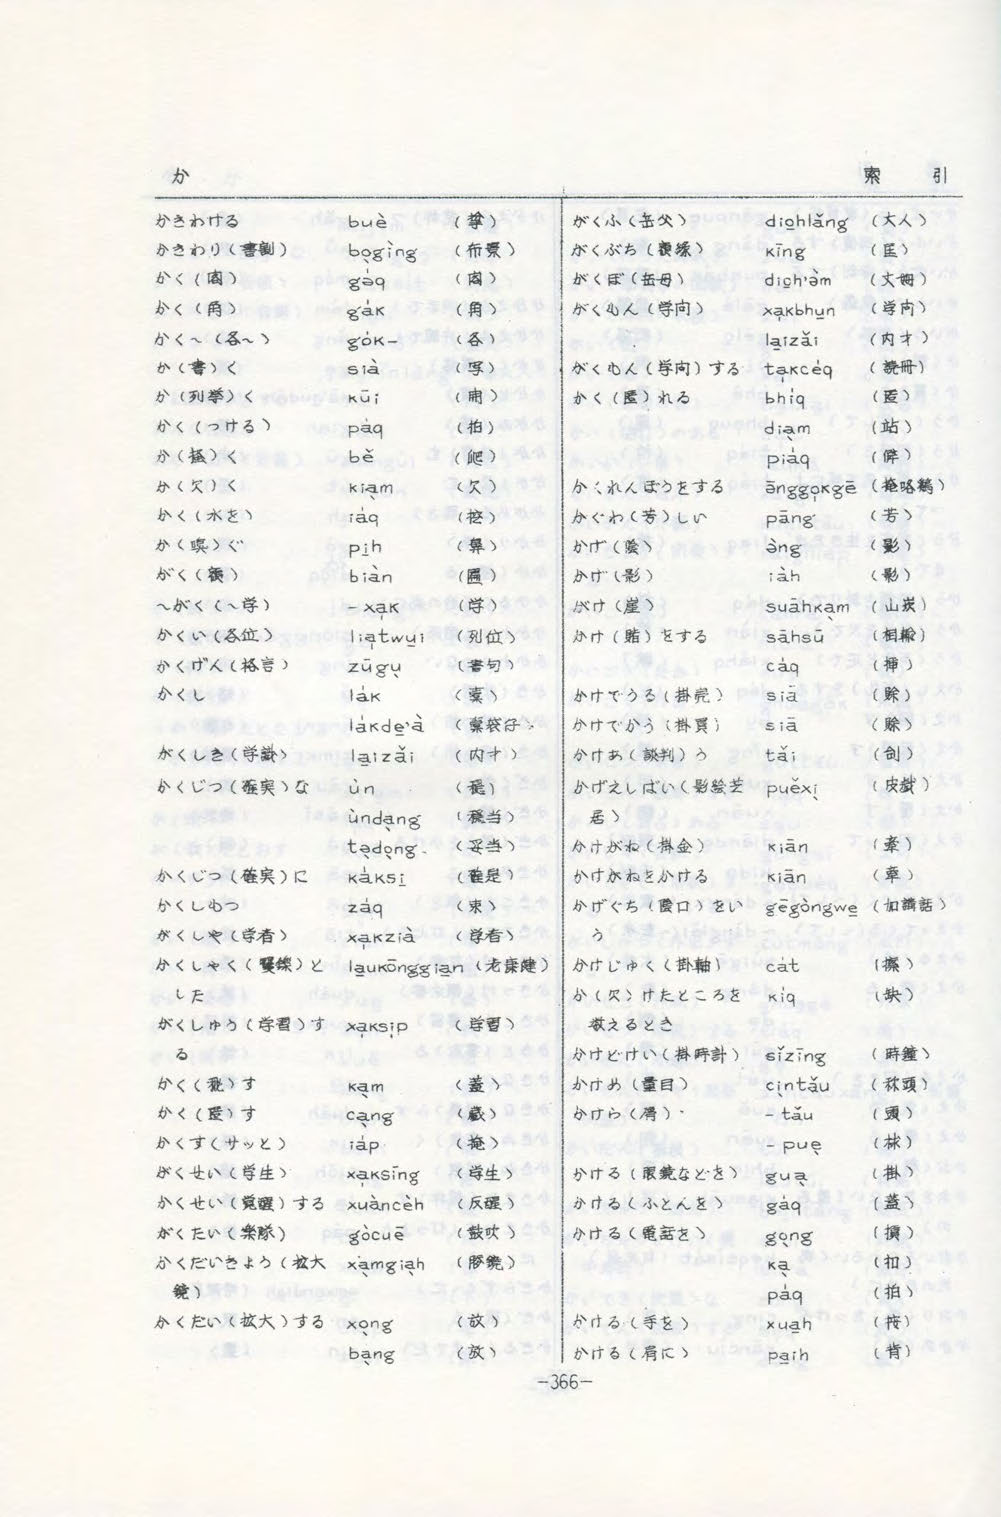 か
索 引
かきわける buè (擘)
かきわり(書割) bo̤gìng (布景)
かく(閣) gȧq (閣)
かく(角) gȧk (角)
かく～(各～) gȯk- (各)
か(書)く sià (写)
か(列挙)く kūi (開)
かく(つける) pȧq (拍)
か(掻)く bě (爬)
か(欠)く kiạm (欠)
かく(水を) iȧq (挖)
か(嗅)ぐ pi̲h (鼻)
がく(額) biàn (匾)
～がく(～学) -xa̩k (学)
かくい(各位) lia̩twu̲i (列位)
かくげん(格言) zūgụ (書句)
かくし lȧk (橐)
lȧkde̲'à (橐袋仔)
がくしき(学識) la̲izǎi (内才)
かくじつ(確実)な ùn (穏)
ùndạng (穏当)
tẹdọng (妥当)
かくじつ(確実)に kȧksi̲ (確是)
かくしゅつ zȧq (束)
がくしゃ(学者) xa̩kzià (学者)
かくしゃく(矍鑠)と la̲ukōnggia̲n (老康健)
した
がくしゅう(学習)す xa̩ksi̩p (学習)
る
かく(隠)す kạm (蓋)
かく(匿)す cạng (蔵)
かくす(サッと) iȧp (掩)
がくせい(学生) xa̩ksīng (学生)
かくせい(覚醒)する xuàncèh (反醒)
がくたい(楽隊) gòcuē (鼓吹)
かくだいきょう(拡大 xàmgiạh (膨鏡)
鏡)
かくだい(拡大)する xọng (放)
bạng (放)
がくふ(岳父) dio̲hlǎng (大人)
がくぶち(額縁) kīng (匡)
がくぼ(岳母) dio̲h'àm (丈姆)
がくもん(学问) xa̩kbhu̲n (学问)
la̲izǎi (内才)
がくもん(学问)する ta̩kcėq (読冊)
かく(匿)れる bhiq (匿)
diạm (站)
piȧq (僻)
かくれんぼうをする ānggo̩kgē (掩咯鶏)
かぐわ(芳)しい pāng (芳)
かげ(陰) àng (影)
かげ(影) iàh (影)
がけ(崖) suāhkạm (山崁)
かけ(賭)をする sāhsū (相輸)
cȧq (挿)
かけでうる(掛売) siā (賖)
かけでかう(掛買) siā (賖)
かけあ(談判)う tǎi (创)
かげえしばい(影絵芝 puěxị (皮戯)
居)
かけがね(掛金) kiān (牽)
かけがねをかける kiān (牽)
かげぐち(陰口)をい gēgòngwe̲ (加講話)
う
かけじゅく(掛軸) cȧt (擦)
か(欠)けたところを kiq (缺)
教えるとき
かけどけい(掛時計) sǐzīng (時鐘)
かけめ(量目) cịntǎu (秤頭)
かけら(屑) -tǎu (頭)
-puẹ (柿)
かける(眼鏡などを) gua̲ (掛)
かける(ふとんを) gȧq (蓋)
かける(電話を) gọng (摃)
kạ (扣)
pȧq (拍)
かける(手を) xua̲h (按)
かける(肩に) pa̲ih (背)
-366-